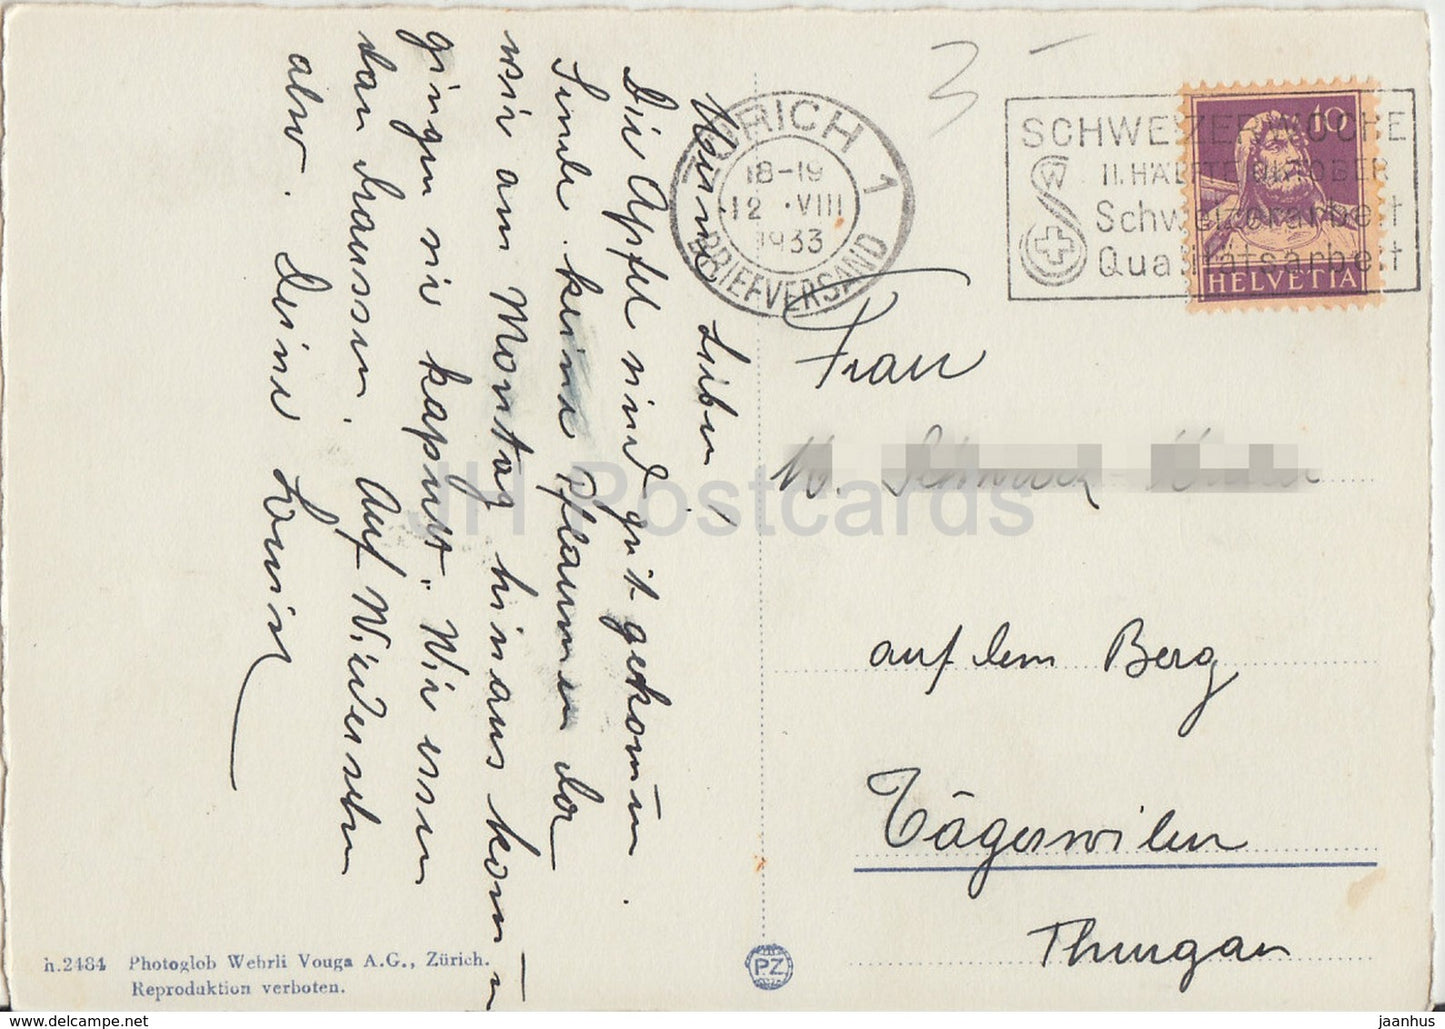 3 –
ZÜRICH 1
18–19
12 . VIII
1933
BRIEFVERSAND
SCHWEIZERWOCHE
II. HÄLFTE OKTOBER
Schweizerarbeit
Qualitätsarbeit
10
HELVETIA
Meine Lieben!
Die Äpfel sind gut gekommen.
Sende keine Pflaumen dor
wir am Montag hinaus komm n
gingen sie kaput. Wir essen
dan draussen. Auf Wiedersehn
also. Deine Louise
Frau
auf dem Berg
Tägerwilen
Thurgau
h.2484 Photoglob Wehrli Vouga A.G., Zürich.
Reproduktion verboten.
PZ
JH Postcards
www.delcampe.net
jaanhus